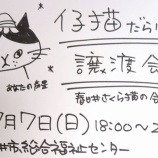 仔猫だらけ
譲渡会
あなたの希望
春日井さくら猫の会
7月7日(日) 18:00〜2
井市総合福祉センター